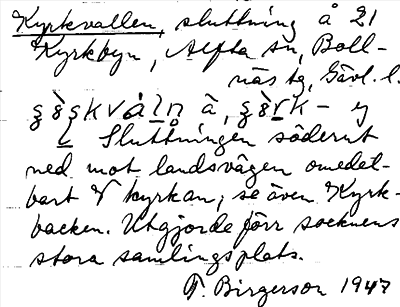 Kyrkvallen, sluttning å 21
Kyrkbyn, Alfta sn, Boll-
näs tg, Gävl. l.
å,
Sluttningen söderut
ned mot landsvägen omedel-
bart V kyrkan, se även Kyrk-
backen. Utgjorde förr socknens
stora samlingsplats.
T. Birgerson 1947